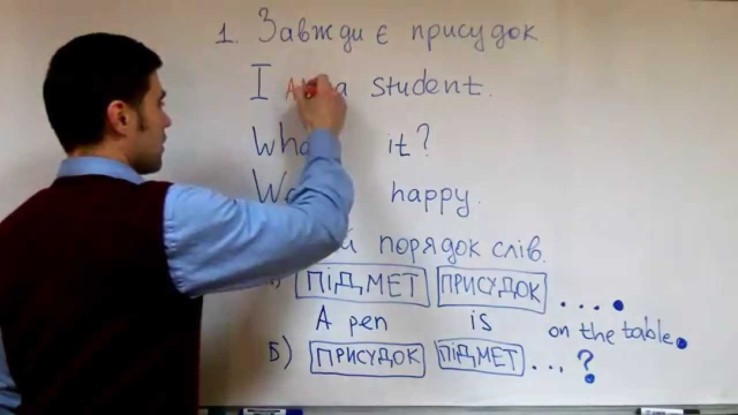 1. Завжди є присудок
I a student.
it?
happy.
порядок слів.
ПІДМЕТ ПРИСУДОК ....
A pen is on the table.
Б) ПРИСУДОК ПІДМЕТ ...?